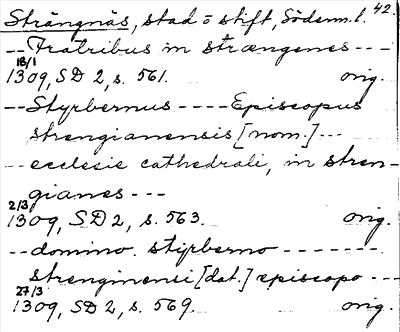 Strängnäs, stad o stift, Söderm. l. 42.
-- Fratribus in strængenes ---
18/1
1309, SD 2, s. 561. orig.
-- Styrbernus ---- Episcopus
strengianensis [nom.] ---
-- ecclesie cathedrali, in stren-
gianes ---
2/3
1309, SD 2, s. 563. orig.
-- domino. styrberno -------
strenginensi [dat.] episcopo ---
27/3
1309, SD 2, s. 569. orig.